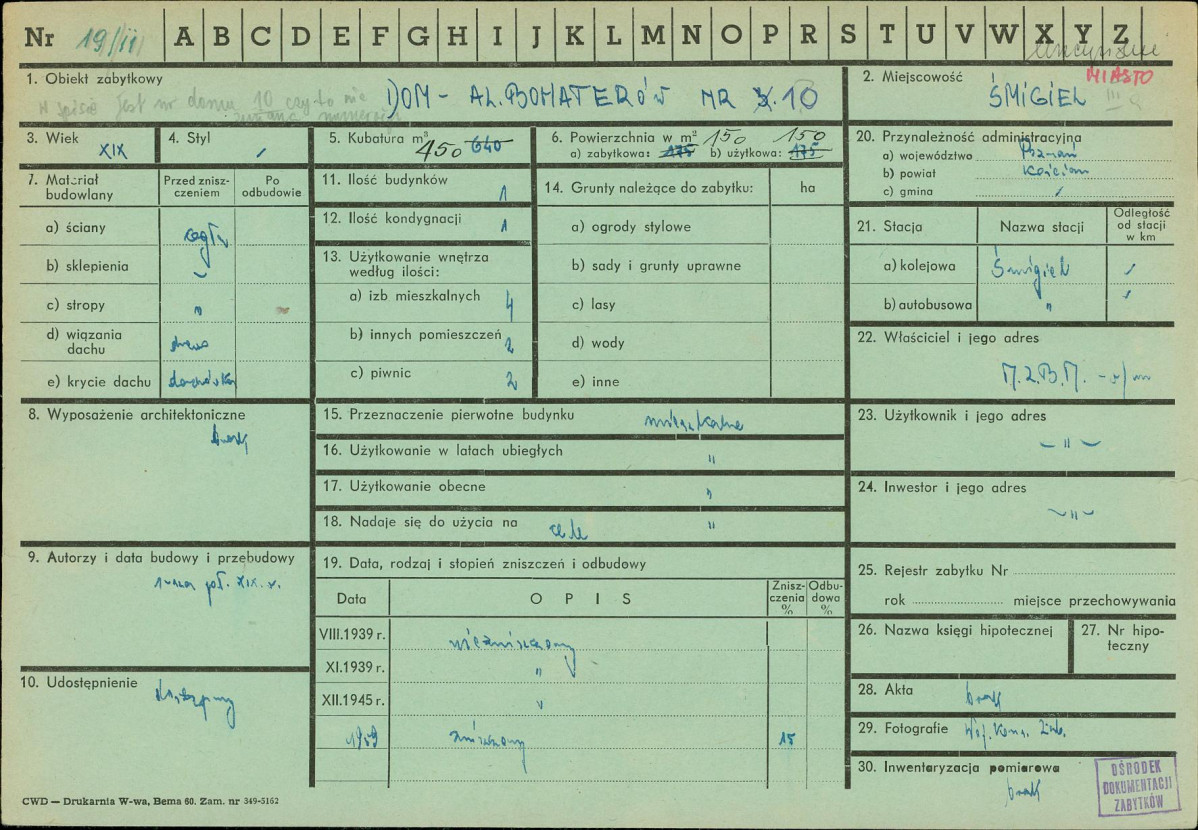 Nr 19/III A B C D E F G H I J K L M N O P R S T U V W X Y Z
1. Obiekt zabytkowy
DOM - AL. BOHATERÓW NR 10
w spisie jest nr domu 10 czy to nie zmiana numeracji
2. Miejscowość
MIASTO
ŚMIGIEL
III
3. Wiek
XIX
4. Styl
5. Kubatura m³
450 640
6. Powierzchnia w m² 150 150
a) zabytkowa: 175 b) użytkowa: 175
20. Przynależność administracyjna
a) województwo Poznań
b) powiat Kościan
c) gmina
7. Materiał budowlany
Przed zniszczeniem
Po odbudowie
a) ściany cegła
b) sklepienia
c) stropy "
d) wiązania dachu drewno
e) krycie dachu dachówka
11. Ilość budynków 1
12. Ilość kondygnacji 1
13. Użytkowanie wnętrza według ilości:
a) izb mieszkalnych 4
b) innych pomieszczeń 2
c) piwnic 2
14. Grunty należące do zabytku:
ha
a) ogrody stylowe
b) sady i grunty uprawne
c) lasy
d) wody
e) inne
21. Stacja
Nazwa stacji
Odległość od stacji w km
a) kolejowa Śmigiel
b) autobusowa "
22. Właściciel i jego adres
M.Z.B.M. - w/m
8. Wyposażenie architektoniczne
brak
15. Przeznaczenie pierwotne budynku mieszkalne
16. Użytkowanie w latach ubiegłych "
17. Użytkowanie obecne "
18. Nadaje się do użycia na cele "
23. Użytkownik i jego adres
- " -
24. Inwestor i jego adres
- " -
9. Autorzy i data budowy i przebudowy
poł. XIX w.
19. Data, rodzaj i stopień zniszczeń i odbudowy
Data
OPIS
Zniszczenia %
Odbudowa %
VIII.1939 r. niezniszczony
XI.1939 r. "
XII.1945 r. "
1959 zniszczony 15
25. Rejestr zabytku Nr
rok miejsce przechowywania
26. Nazwa księgi hipotecznej
27. Nr hipoteczny
10. Udostępnienie
dostępny
28. Akta brak
29. Fotografie Woj. Kons. Zab.
30. Inwentaryzacja pomiarowa
brak
OŚRODEK
DOKUMENTACJI
ZABYTKÓW
CWD — Drukarnia W-wa, Bema 60. Zam. nr 349-5162